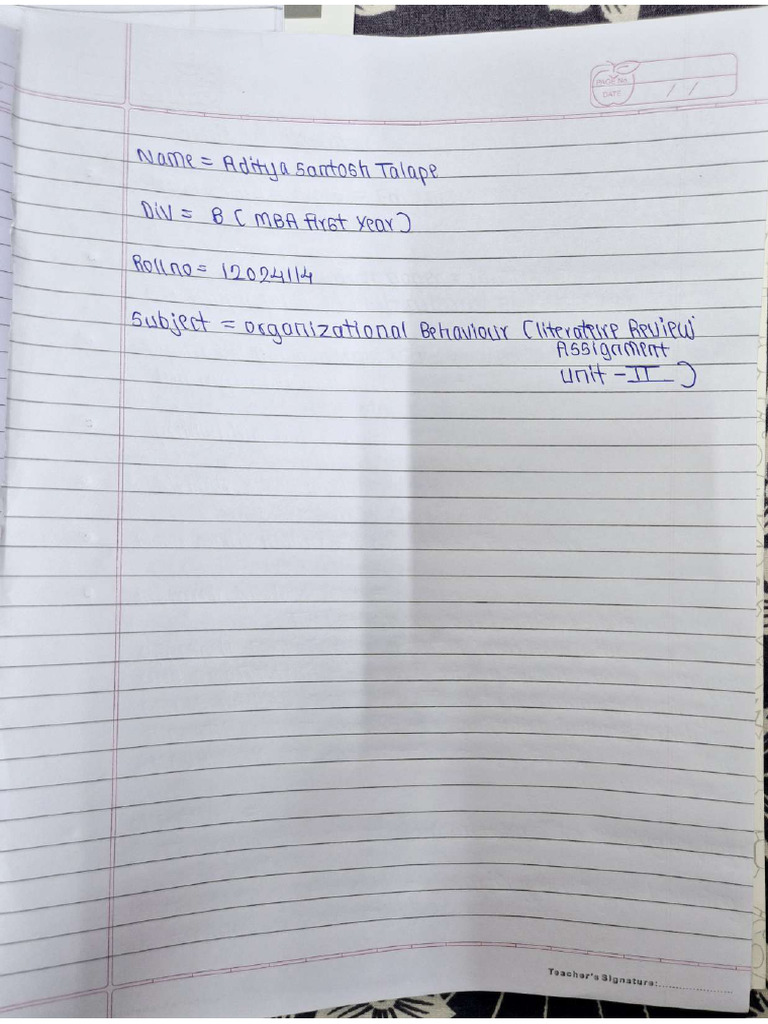 PAGE No.
DATE / /
Name = Aditya Santosh Talape
Div = B ( MBA first year)
Roll no = 12024114
Subject = Organizational Behaviour (literature Review
Assignment
Unit - II )
Teacher's Signature:.....................